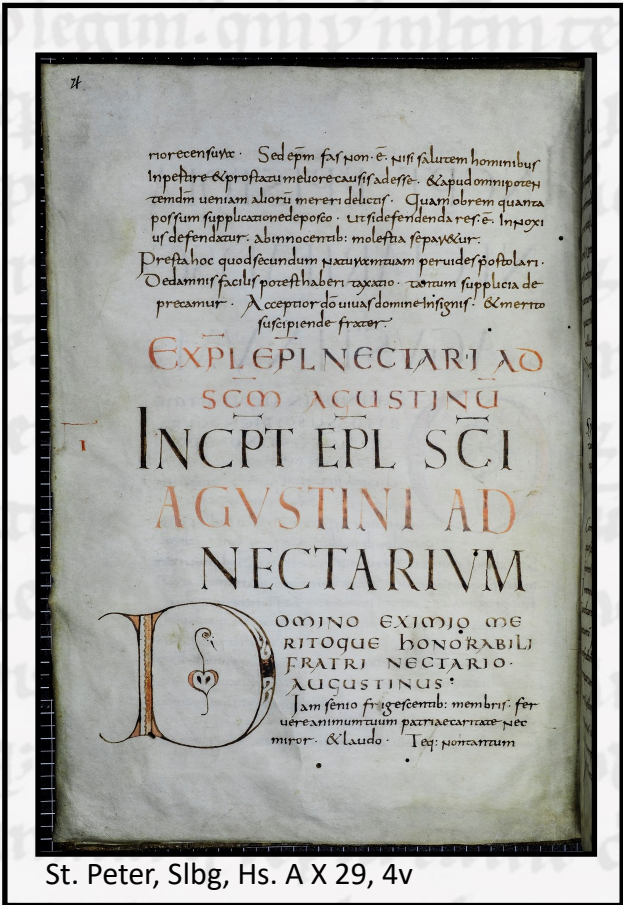 riorecensurae. Sed ep̄m fas non. ē. nisi salutem hominibus
Inpestire & prostatu meliore causis adesse. & apud omnipoten
temdm̄ veniam aliorū mereri delictis. Quam obrem quanta
possum supplicatione deposco. ut si defendenda res. ē. Innoxi
us defendatur. abinnocentib: molestia separ&ur.
Presta hoc quod secundum naturam tuam peruides postolari.
Dedamnis facilis potest haberi taxatio. tantum supplicia de
precamur. Acceptior dō uiuas domine Insignis. & merito
suscipiende frater.
EXPL̄ EPL̄ NECTARI AD
SC̄M AGUSTINŪ
INCPT EPL SC̄I
AGVSTINI AD
NECTARIVM
DOMINO EXIMIO ME
RITOQUE hONORABILI
FRATRI NECTARIO.
AUGUSTINUS:
Iam senio frigescentib: membris. fer
uere animum tuum patriae caritate nec
miror. & laudo. Teq: non tantum
St. Peter, Slbg, Hs. A X 29, 4v